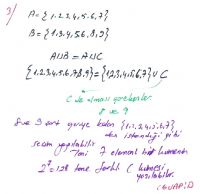 3)
A = { 1,2,3,4,5,6,7}
B = { 1,3,4,5,6,8,9}
AUB = AUC
{1,2,3,4,5,6,7,8,9} = {1,2,3,4,5,6,7} U C
C de olması gerekenler
8 ve 9
8 ve 9 geriye kalan {1,2,3,4,5,6,7}
den istendiği gibi
seçim yapılabilir
Yani 7 elemanlı
2⁷ = 128 tane farklı C kümesi
yazılabilir.
CEVAP: D